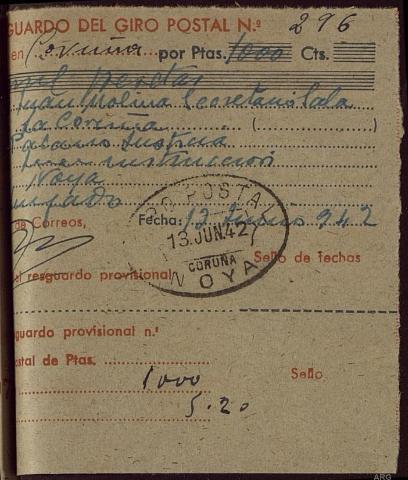 GUARDO DEL GIRO POSTAL N.º 296
en Coruña por Ptas. 1000 Cts.
mil pesetas
Juan Molina Secretario Sala
La Coruña (
Palacio Justicia
instruccion
Noya
de Correos, Fecha: 12 Junio 942
GIRO POSTAL
13.JUN.42
CORUÑA
NOYA
Sello de fechas
el resguardo provisional
guardo provisional n.º
ostal de Ptas.
1000
Sello
5.20
ARG